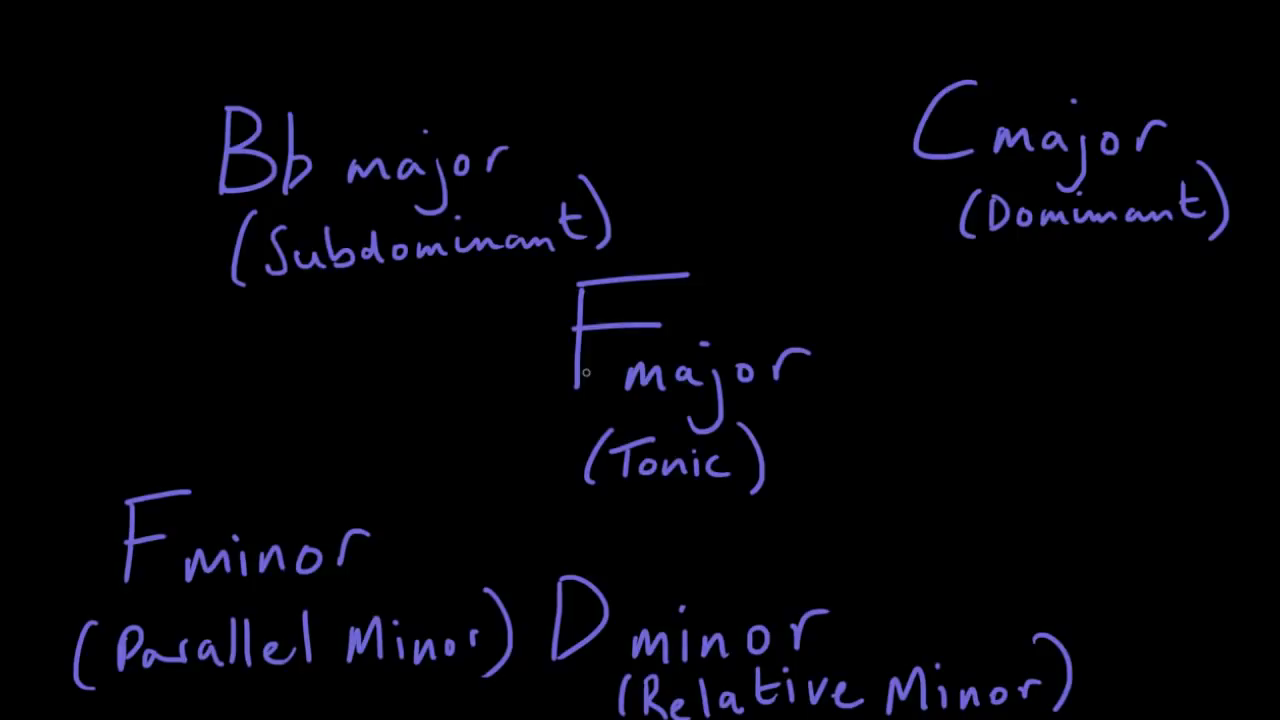 Bb major
(Subdominant)
C major
(Dominant)
F major
(Tonic)
F minor
(Parallel Minor)
D minor
(Relative Minor)